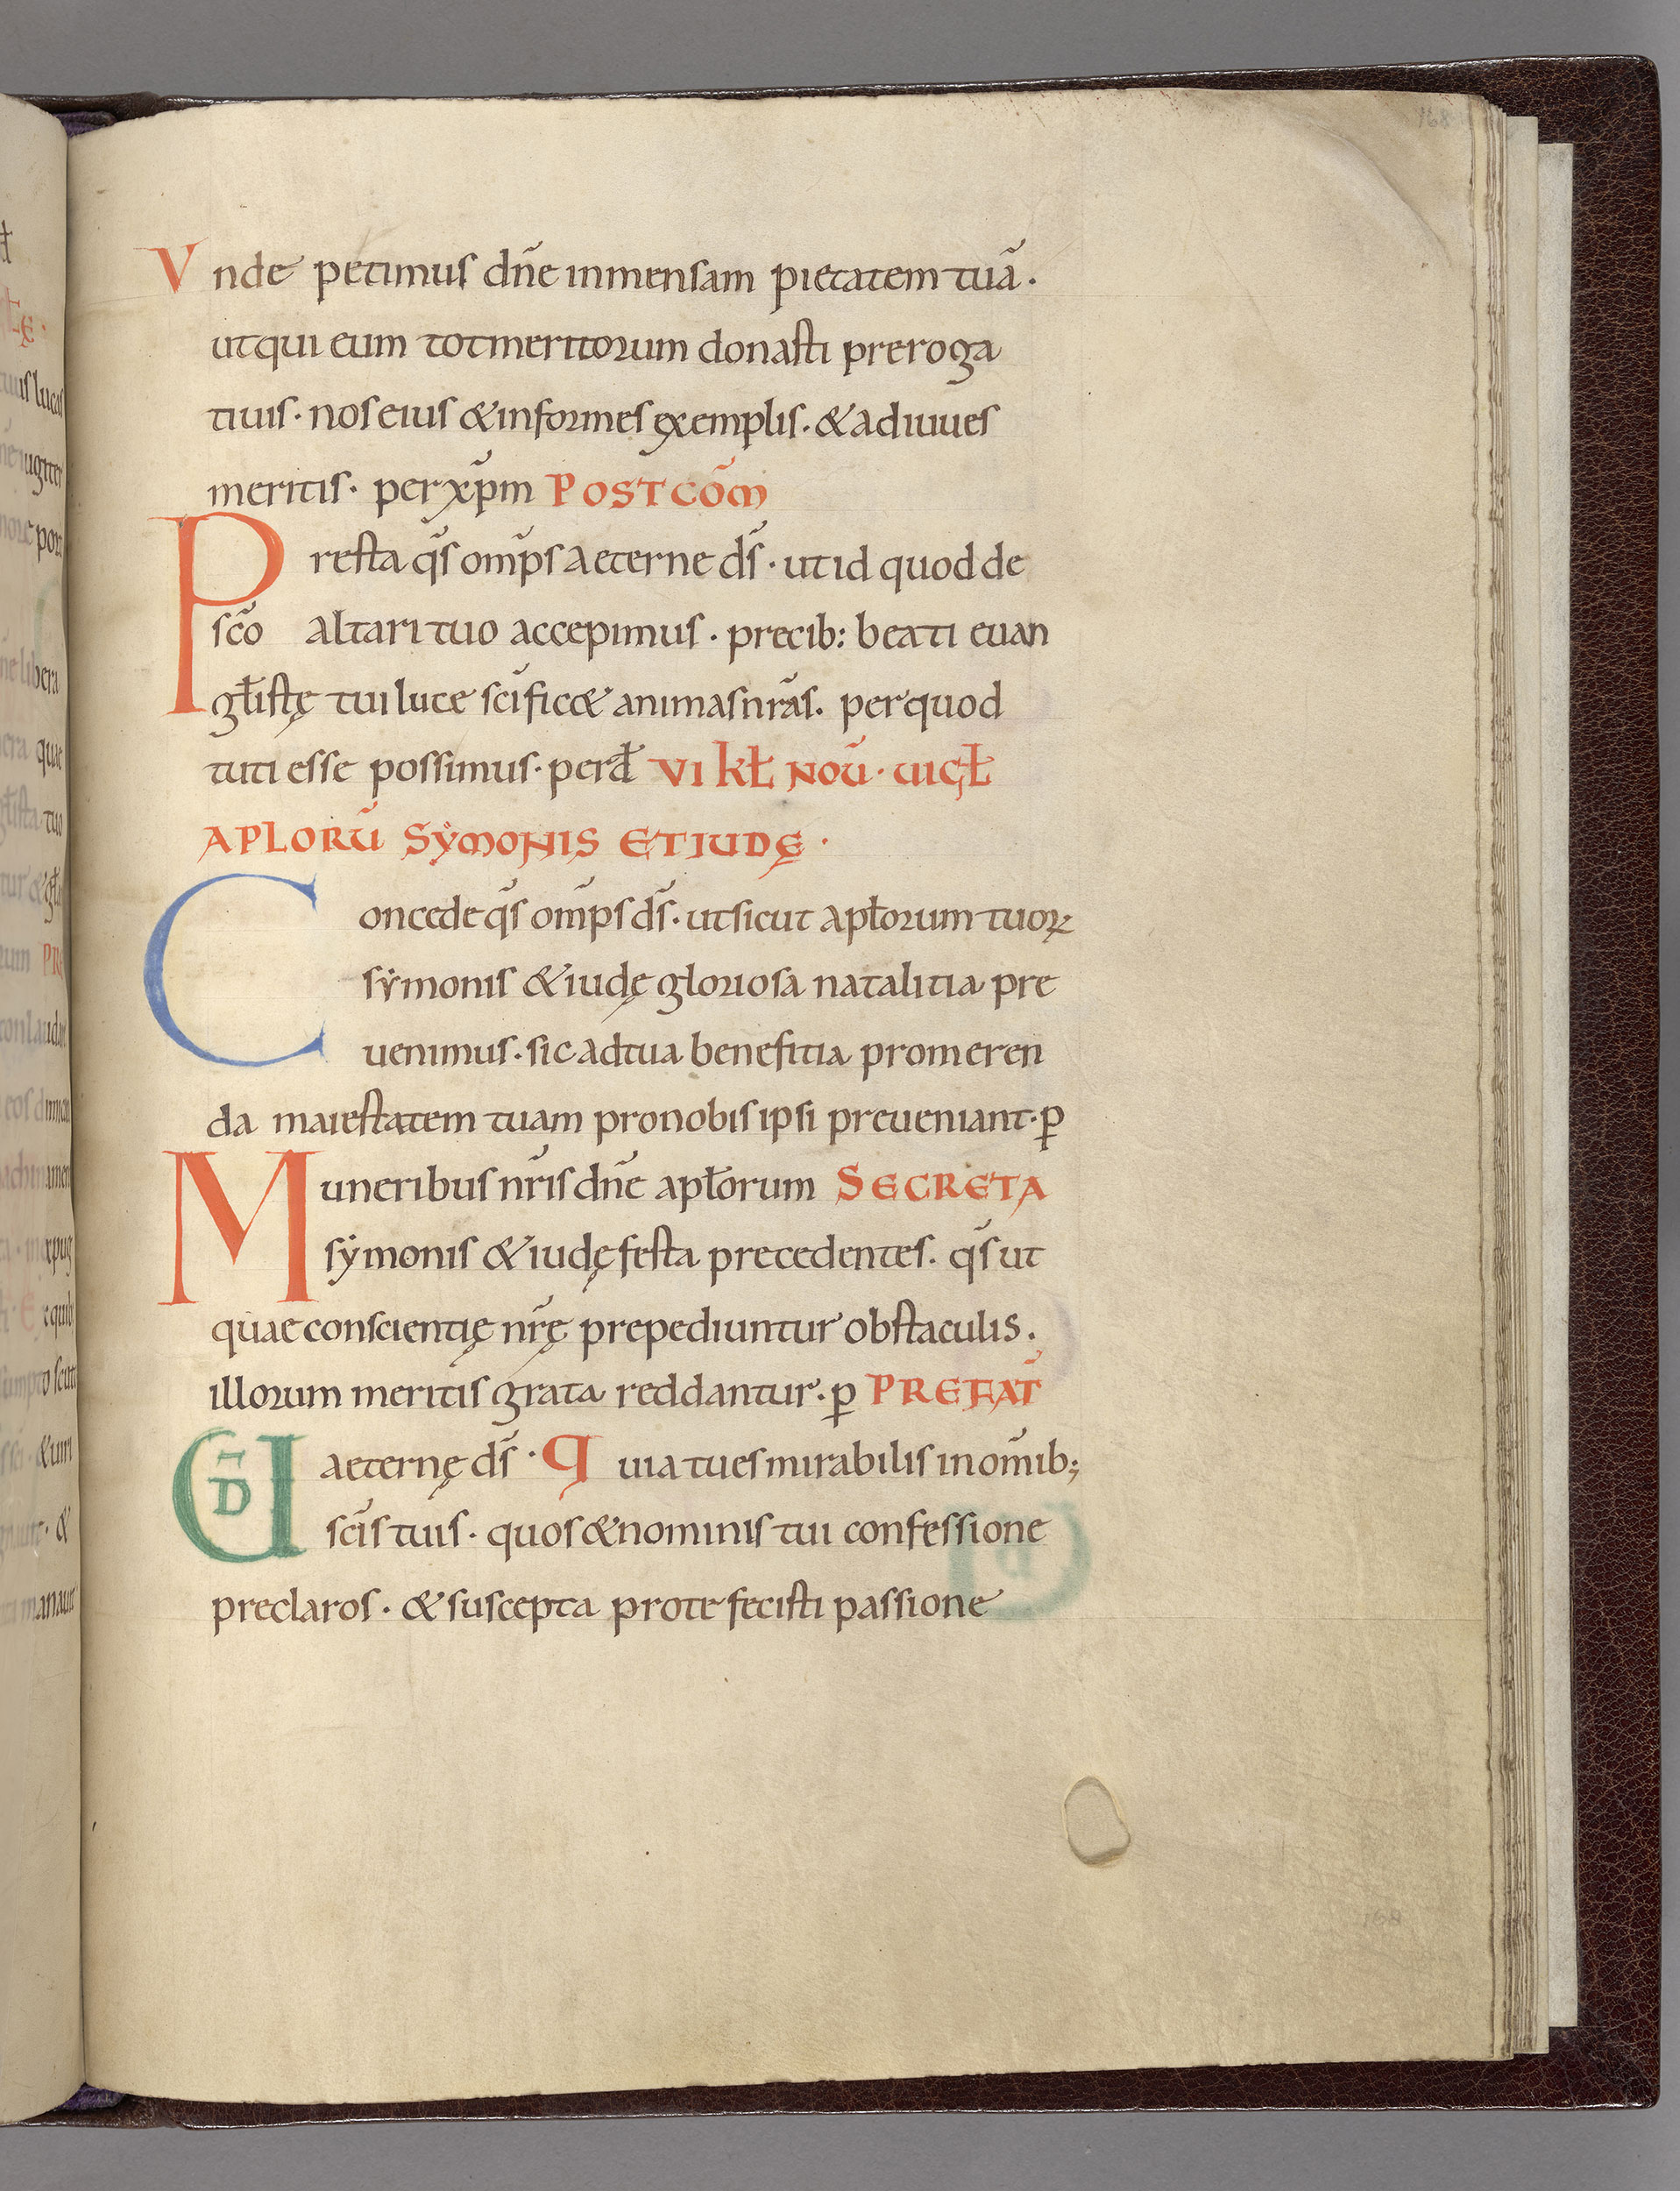 168
Vnde petimus dñe inmensam pietatem tuā.
ut qui eum tot meritorum donasti preroga
tiuis· nos eius & informes exemplis· & adiuues
meritis· per xp̄m POST COM̄
Presta q̄s om̄ps aeterne d̄s· ut id quod de
sc̄o altari tuo accepimus· precib: beati euan
gl̄istę tui luce sc̄ific& animas nr̄as· per quod
tuti esse possimus· per đ VI KŁ NOṼ· UIGŁ
APLORŪ SẎMONIS ET IUDĘ·
Concede q̄s om̄ps d̄s· ut sicut apłorum tuoꝝ
sẏmonis & iudę gloriosa natalitia pre
uenimus· sic ad tua benefitia promeren
da maiestatem tuam pro nobis ipsi preueniant· ꝑ
Muneribus nr̄is dñe apłorum SECRETA
sẏmonis & iudę festa precedentes· q̄s ut
quae conscientię nr̄ę prepediuntur obstaculis.
illorum meritis grata reddantur· ꝑ PREFAT̄
UD̄ aeternę d̄s· Quia tu es mirabilis in om̄ib;
sc̄is tuis· quos & nominis tui confessione
preclaros· & suscepta pro te fecisti passione